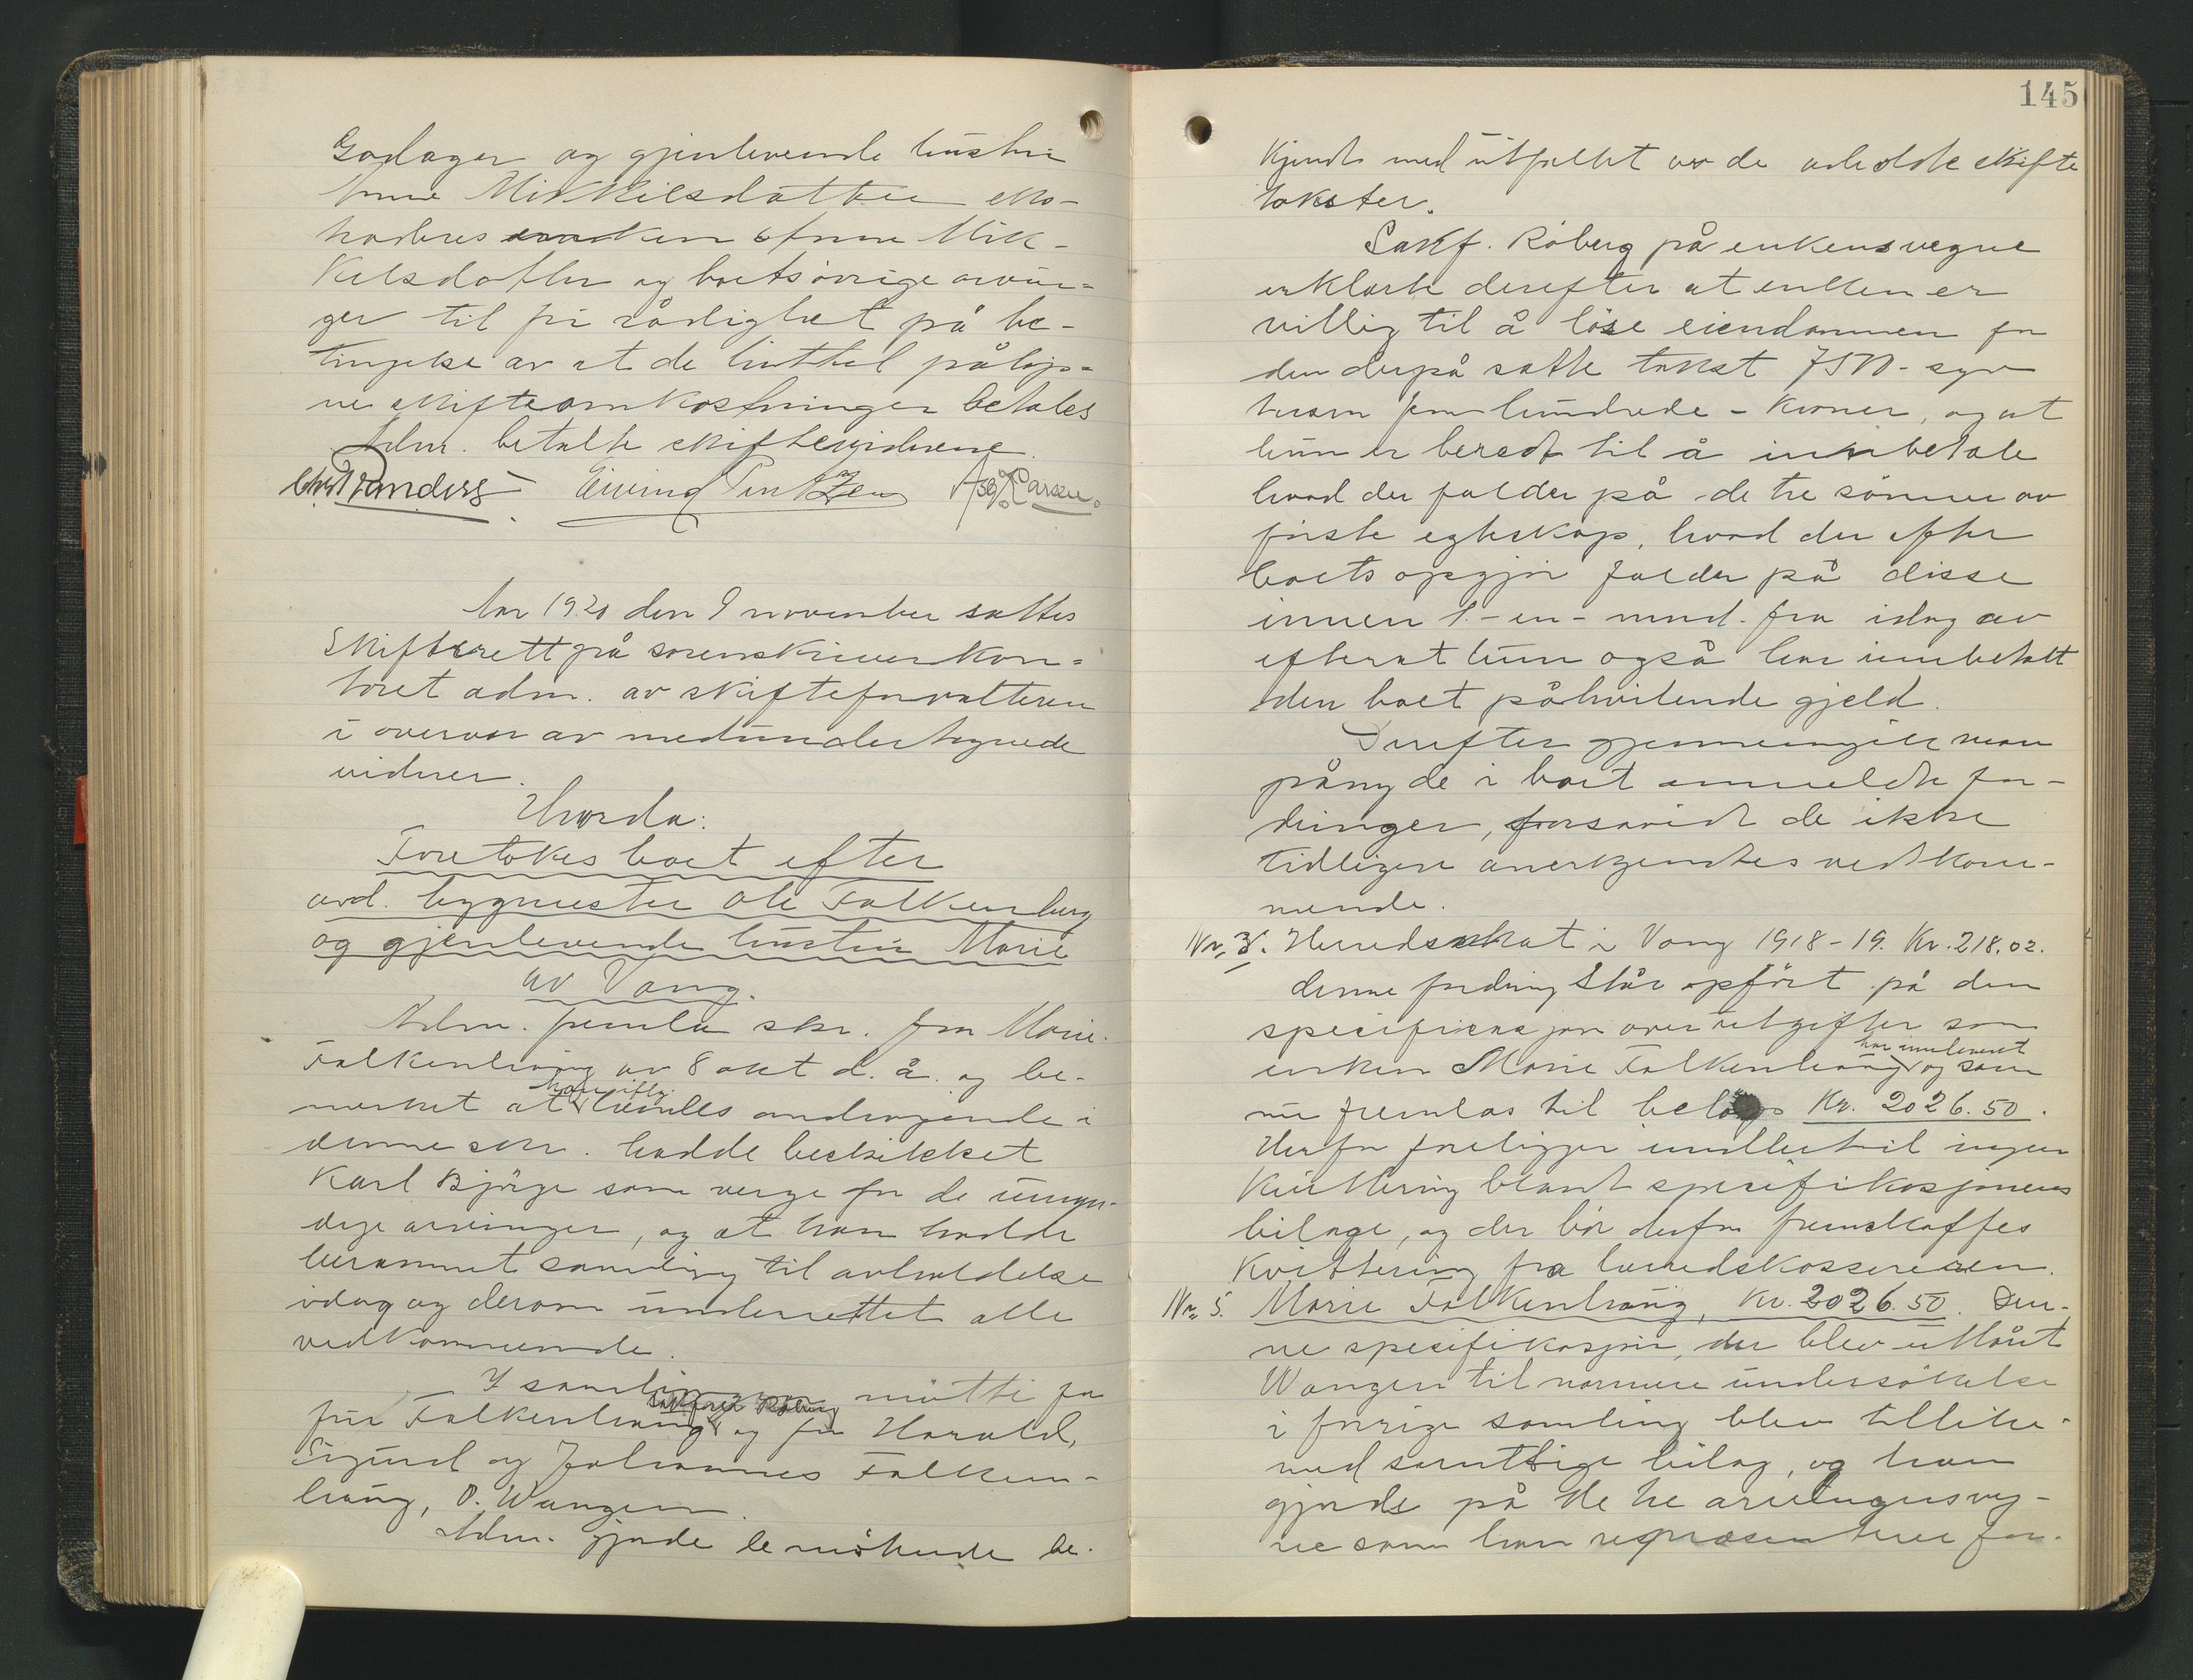 Godager og gjenlevende hustru
Anne Mikkelsdatter eks-
traderes enken Anne Mik-
kelsdatter og boets övrige arvin-
ger til fri rådighet på be-
tingelse av at de hittil påløp-
ne skifteomkostninger betales
Adm. betalte skiftevidnene.
Chr. Randers Eivind Arntzen Aseg. Larsen.
Aar 1920 den 9 november sattes
Skifterett på sorenskriverkon-
toret adm. av skifteforvalteren
i overvær av medundertegnede
vidner.
Hvorda:
Foretokes boet efter
avd. bygmester Ole Falkenhaug
og gjenlevende hustru Marie
av Vang.
Adm. fremla skr. fra Marie
Falkenhaug av 8 okt d. å. og be-
merket at han iflg. hendes andragende i
denne skr. hadde beskikket
Karl Bjørge som verge for de umyn-
dige arvinger, og at han hadde
berammet samling til avholdelse
idag og derom underrettet alle
vedkommende.
I samlingen mötte for
fru Falkenhaug sakförer Röberg og for Harald,
Sigurd og Johannes Falken-
haug, O. Wangen.
Adm. gjorde de mötende be-
145
kjendt med utfallet av de avholdte skifte
takster.
Sakf. Röberg på enkens vegne
erklærte derefter at enken er
villig til å löse eiendommen for
den derpå satte takst 7500 - syv
tusen fem hundrede - kroner, og at
hun er beredt til å innbetale
hvad der falder på de tre sönner av
förste egteskap, hvad der efter
boets opgjör falder på disse
innen 1 - en - mnd. fra idag av
efterat hun også har innbetalt
den boet påhvilende gjeld.
Derefter gjennemgikk man
påny de i boet anmeldte for-
dringer, forsåvidt de ikke
tidligere anerkjendtes vedkom-
mende.
Nr. 3. Herredsskat i Vang 1918-19. Kr. 218.02.
denne fordring står opfört på den
specifikasjon over utgifter som
enken Marie Falkenhaug har innlevert og som
nu fremlas til beløp Kr. 2026.50.
Herfor foreligger imidlertid ingen
kvittering blant spesifikasjonens
bilage, og der bör derfor fremskaffes
kvittering fra herredskassereren.
Nr. 5. Marie Falkenhaug, Kr. 2026.50. Den-
ne spesifikasjon, der blev utlånt
Wangen til nærmere undersökelse
i forrige samling blev tillike-
med samtlige bilag, og han
gjorde på de tre arvingers veg-
ne som han repræsenterer for-